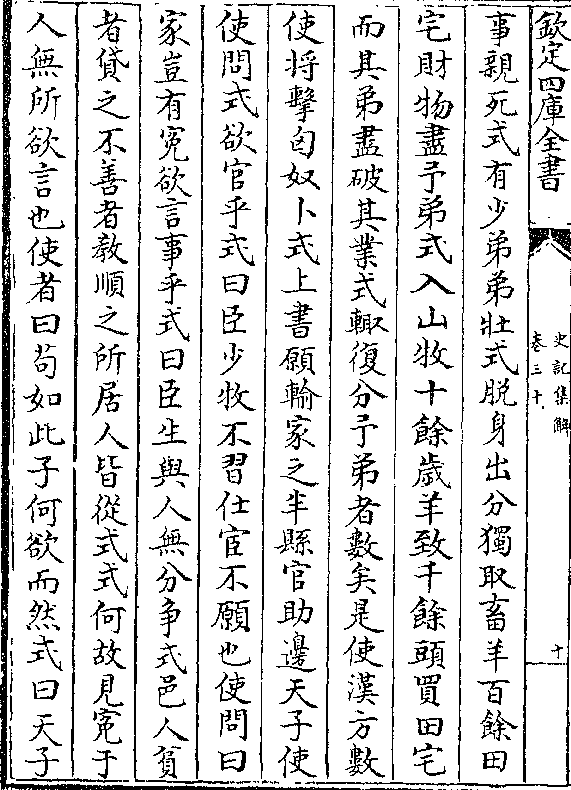 欽定四庫全書
史記集解
卷三十
十
事親死式有少弟弟壯式脫身出分獨取畜羊百餘田
宅財物盡予弟式入山牧十餘歲羊致千餘頭買田宅
而其弟盡破其業式輙復分予弟者數矣是使漢方數
使將擊匈奴卜式上書願輸家之半縣官助邊天子使
使問式欲官乎式曰臣少牧不習仕宦不願也使問曰
家豈有寃欲言事乎式曰臣生與人無分爭式邑人貧
者貸之不善者教順之所居人皆從式式何故見寃于
人無所欲言也使者曰苟如此子何欲而然式曰天子